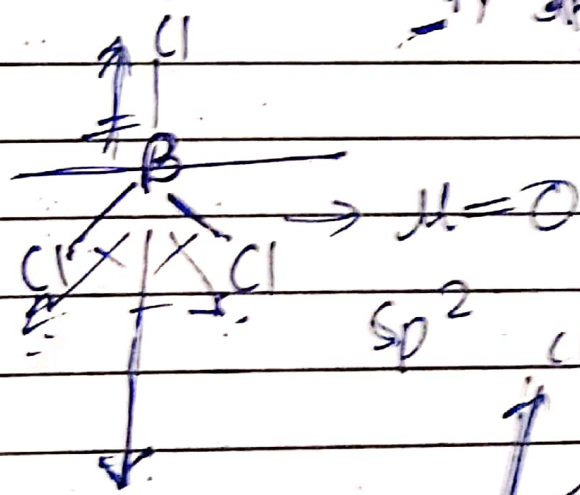 Cl
B
Cl Cl → μ=0
sp²